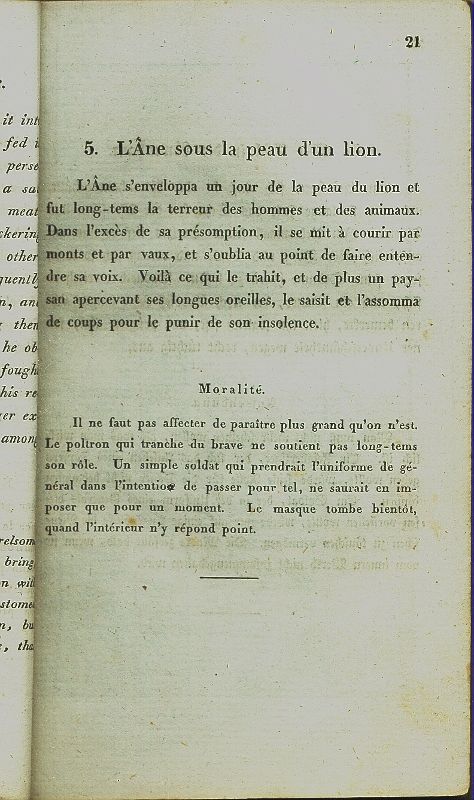 21
5. L'Âne sous la peau d'un lion.
L'Âne s'enveloppa un jour de la peau du lion et
fut long-tems la terreur des hommes et des animaux.
Dans l'excès de sa présomption, il se mit à courir par
monts et par vaux, et s'oublia au point de faire enten-
dre sa voix. Voilà ce qui le trahit, et de plus un pay-
san apercevant ses longues oreilles, le saisit et l'assomma
de coups pour le punir de son insolence.
Moralité.
Il ne faut pas affecter de paraître plus grand qu'on n'est.
Le poltron qui tranche du brave ne soutient pas long-tems
son rôle. Un simple soldat qui prendrait l'uniforme de gé-
néral dans l'intention de passer pour tel, ne saurait en im-
poser que pour un moment. Le masque tombe bientôt,
quand l'intérieur n'y répond point.
it
fed
a
meat
other
he
his
among
bring